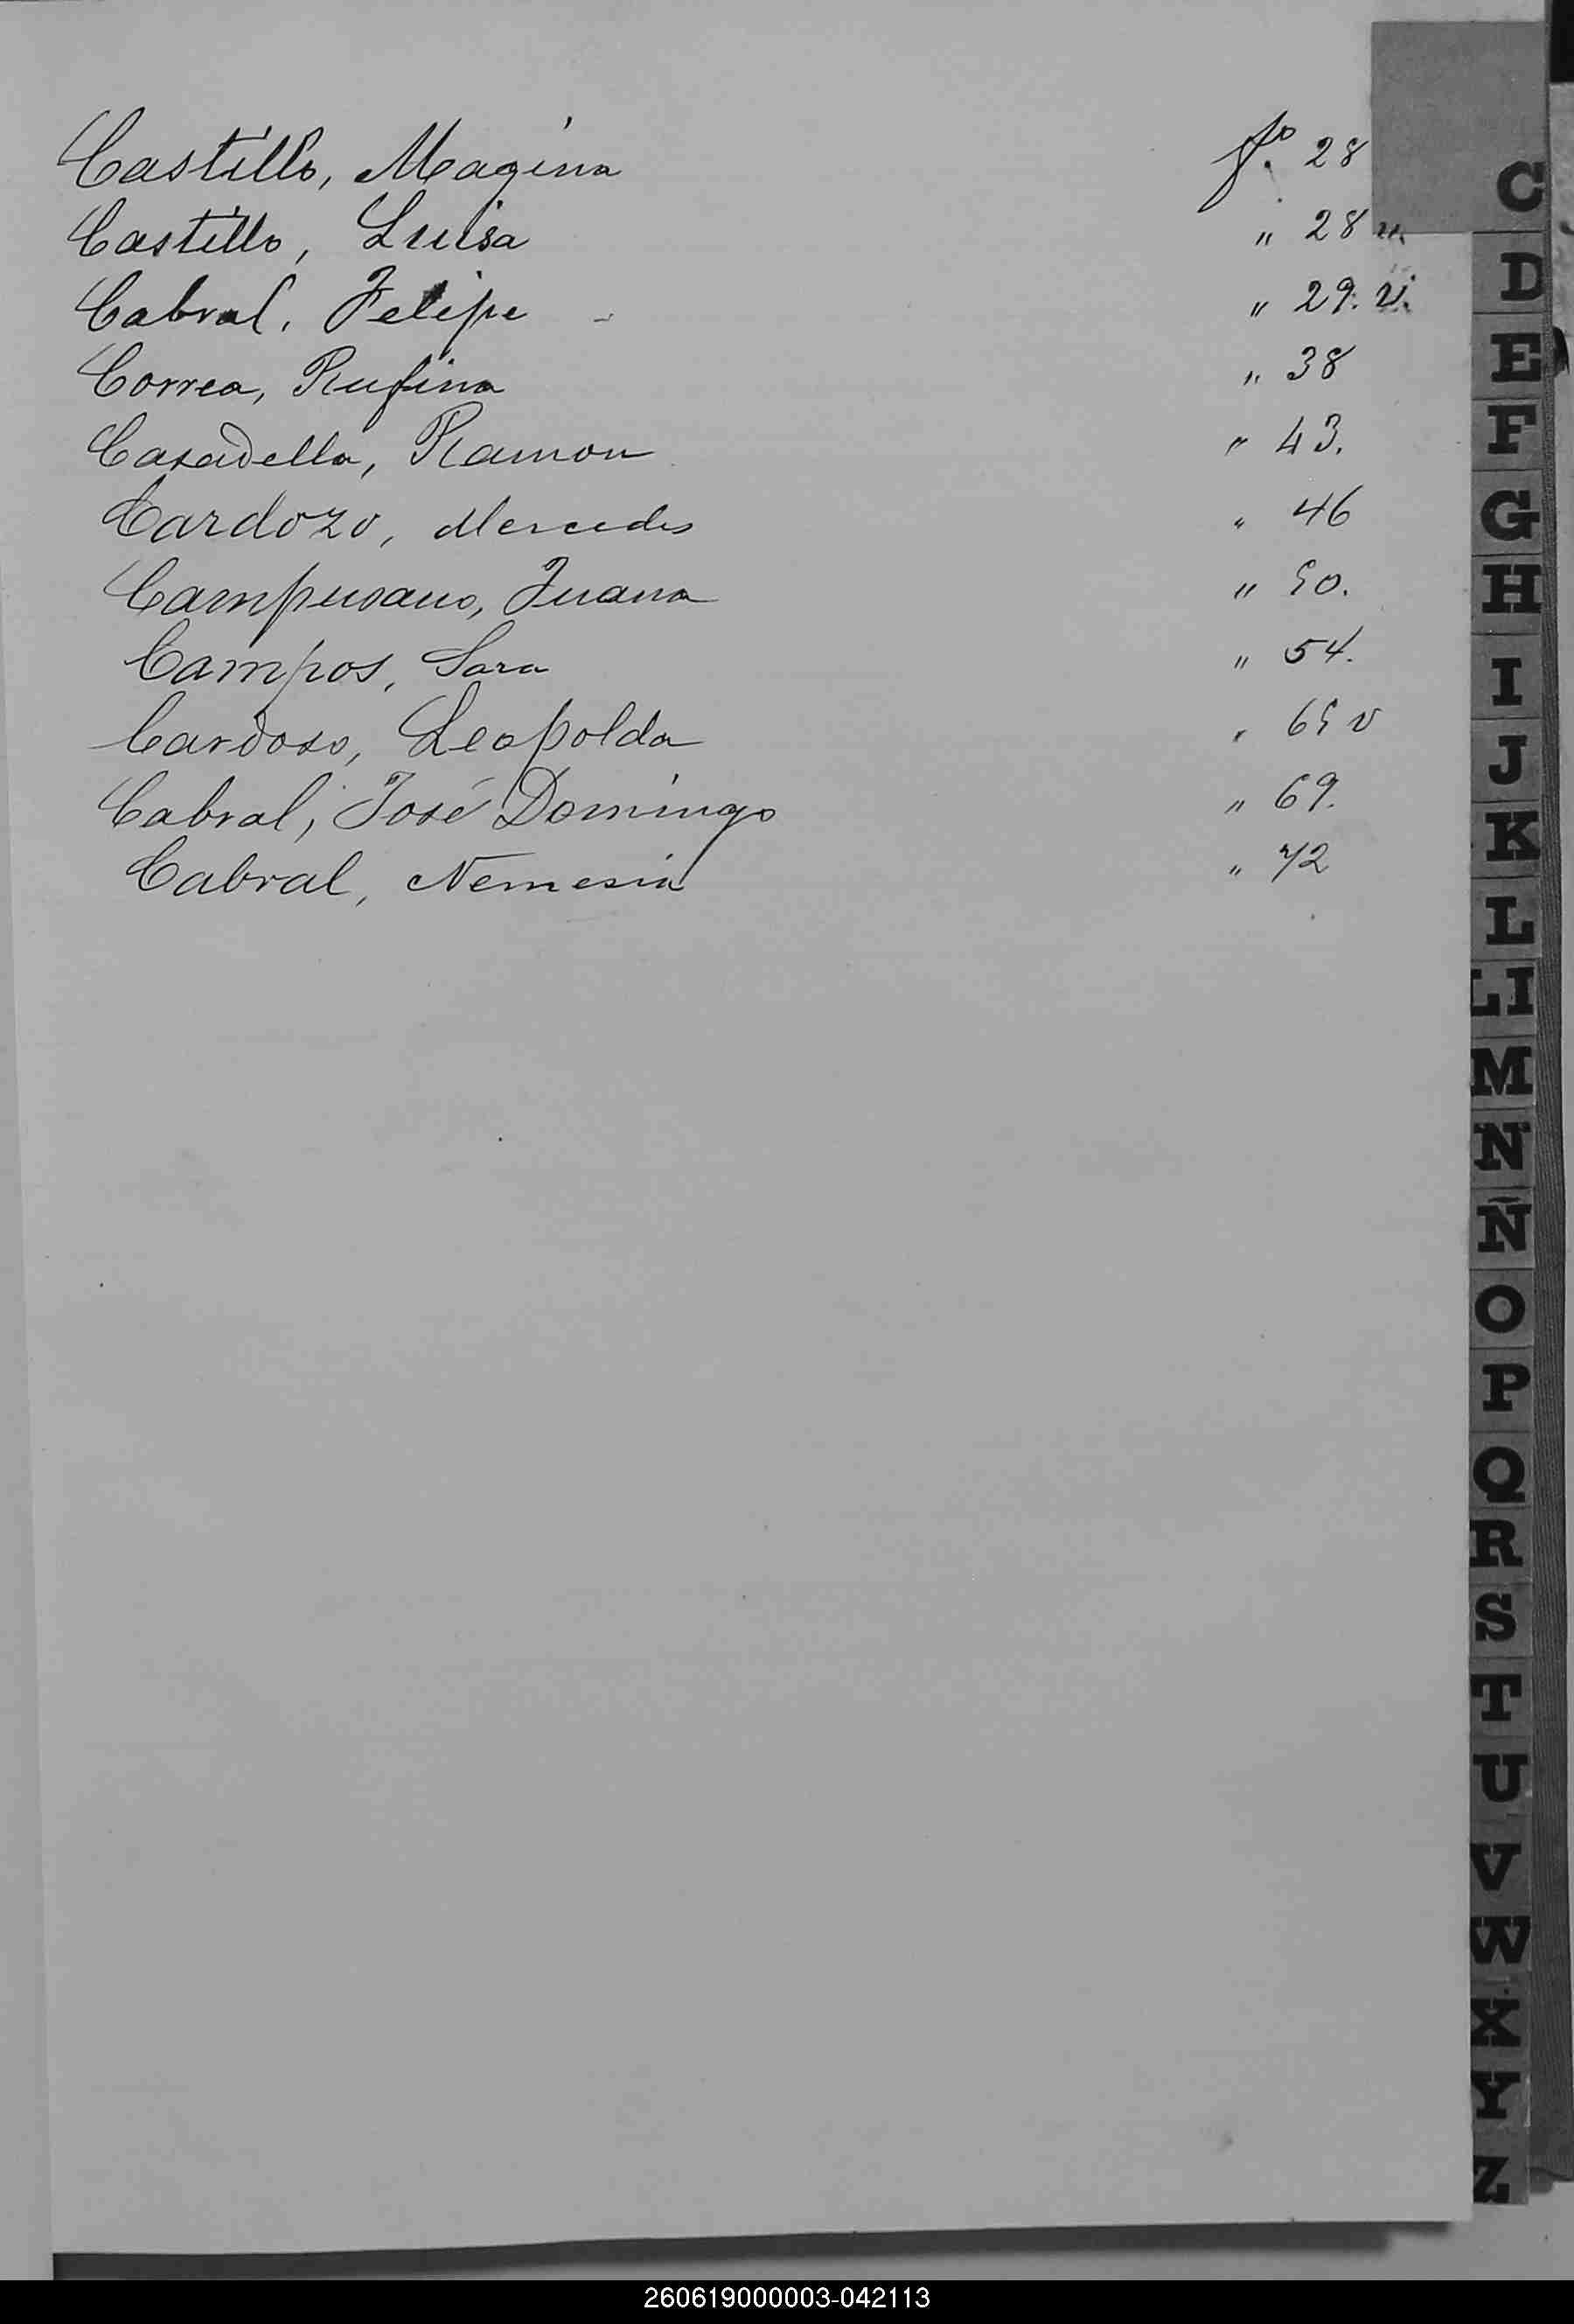 Castillo, Magina fo. 28
Castillo, Luisa " 28 v.
Cabral, Felipe " 29. v.
Correa, Rufina " 38
Casadella, Ramon " 43.
Cardozo, Mercedes " 46
Campusano, Juana " 50.
Campos, Sara " 54.
Cardoso, Leopolda " 65 v
Cabral, José Domingo " 69.
Cabral, Nemesia " 72
C
D
E
F
G
H
I
J
K
L
Ll
M
N
Ñ
O
P
Q
R
S
T
U
V
W
X
Y
Z
260619000003-042113